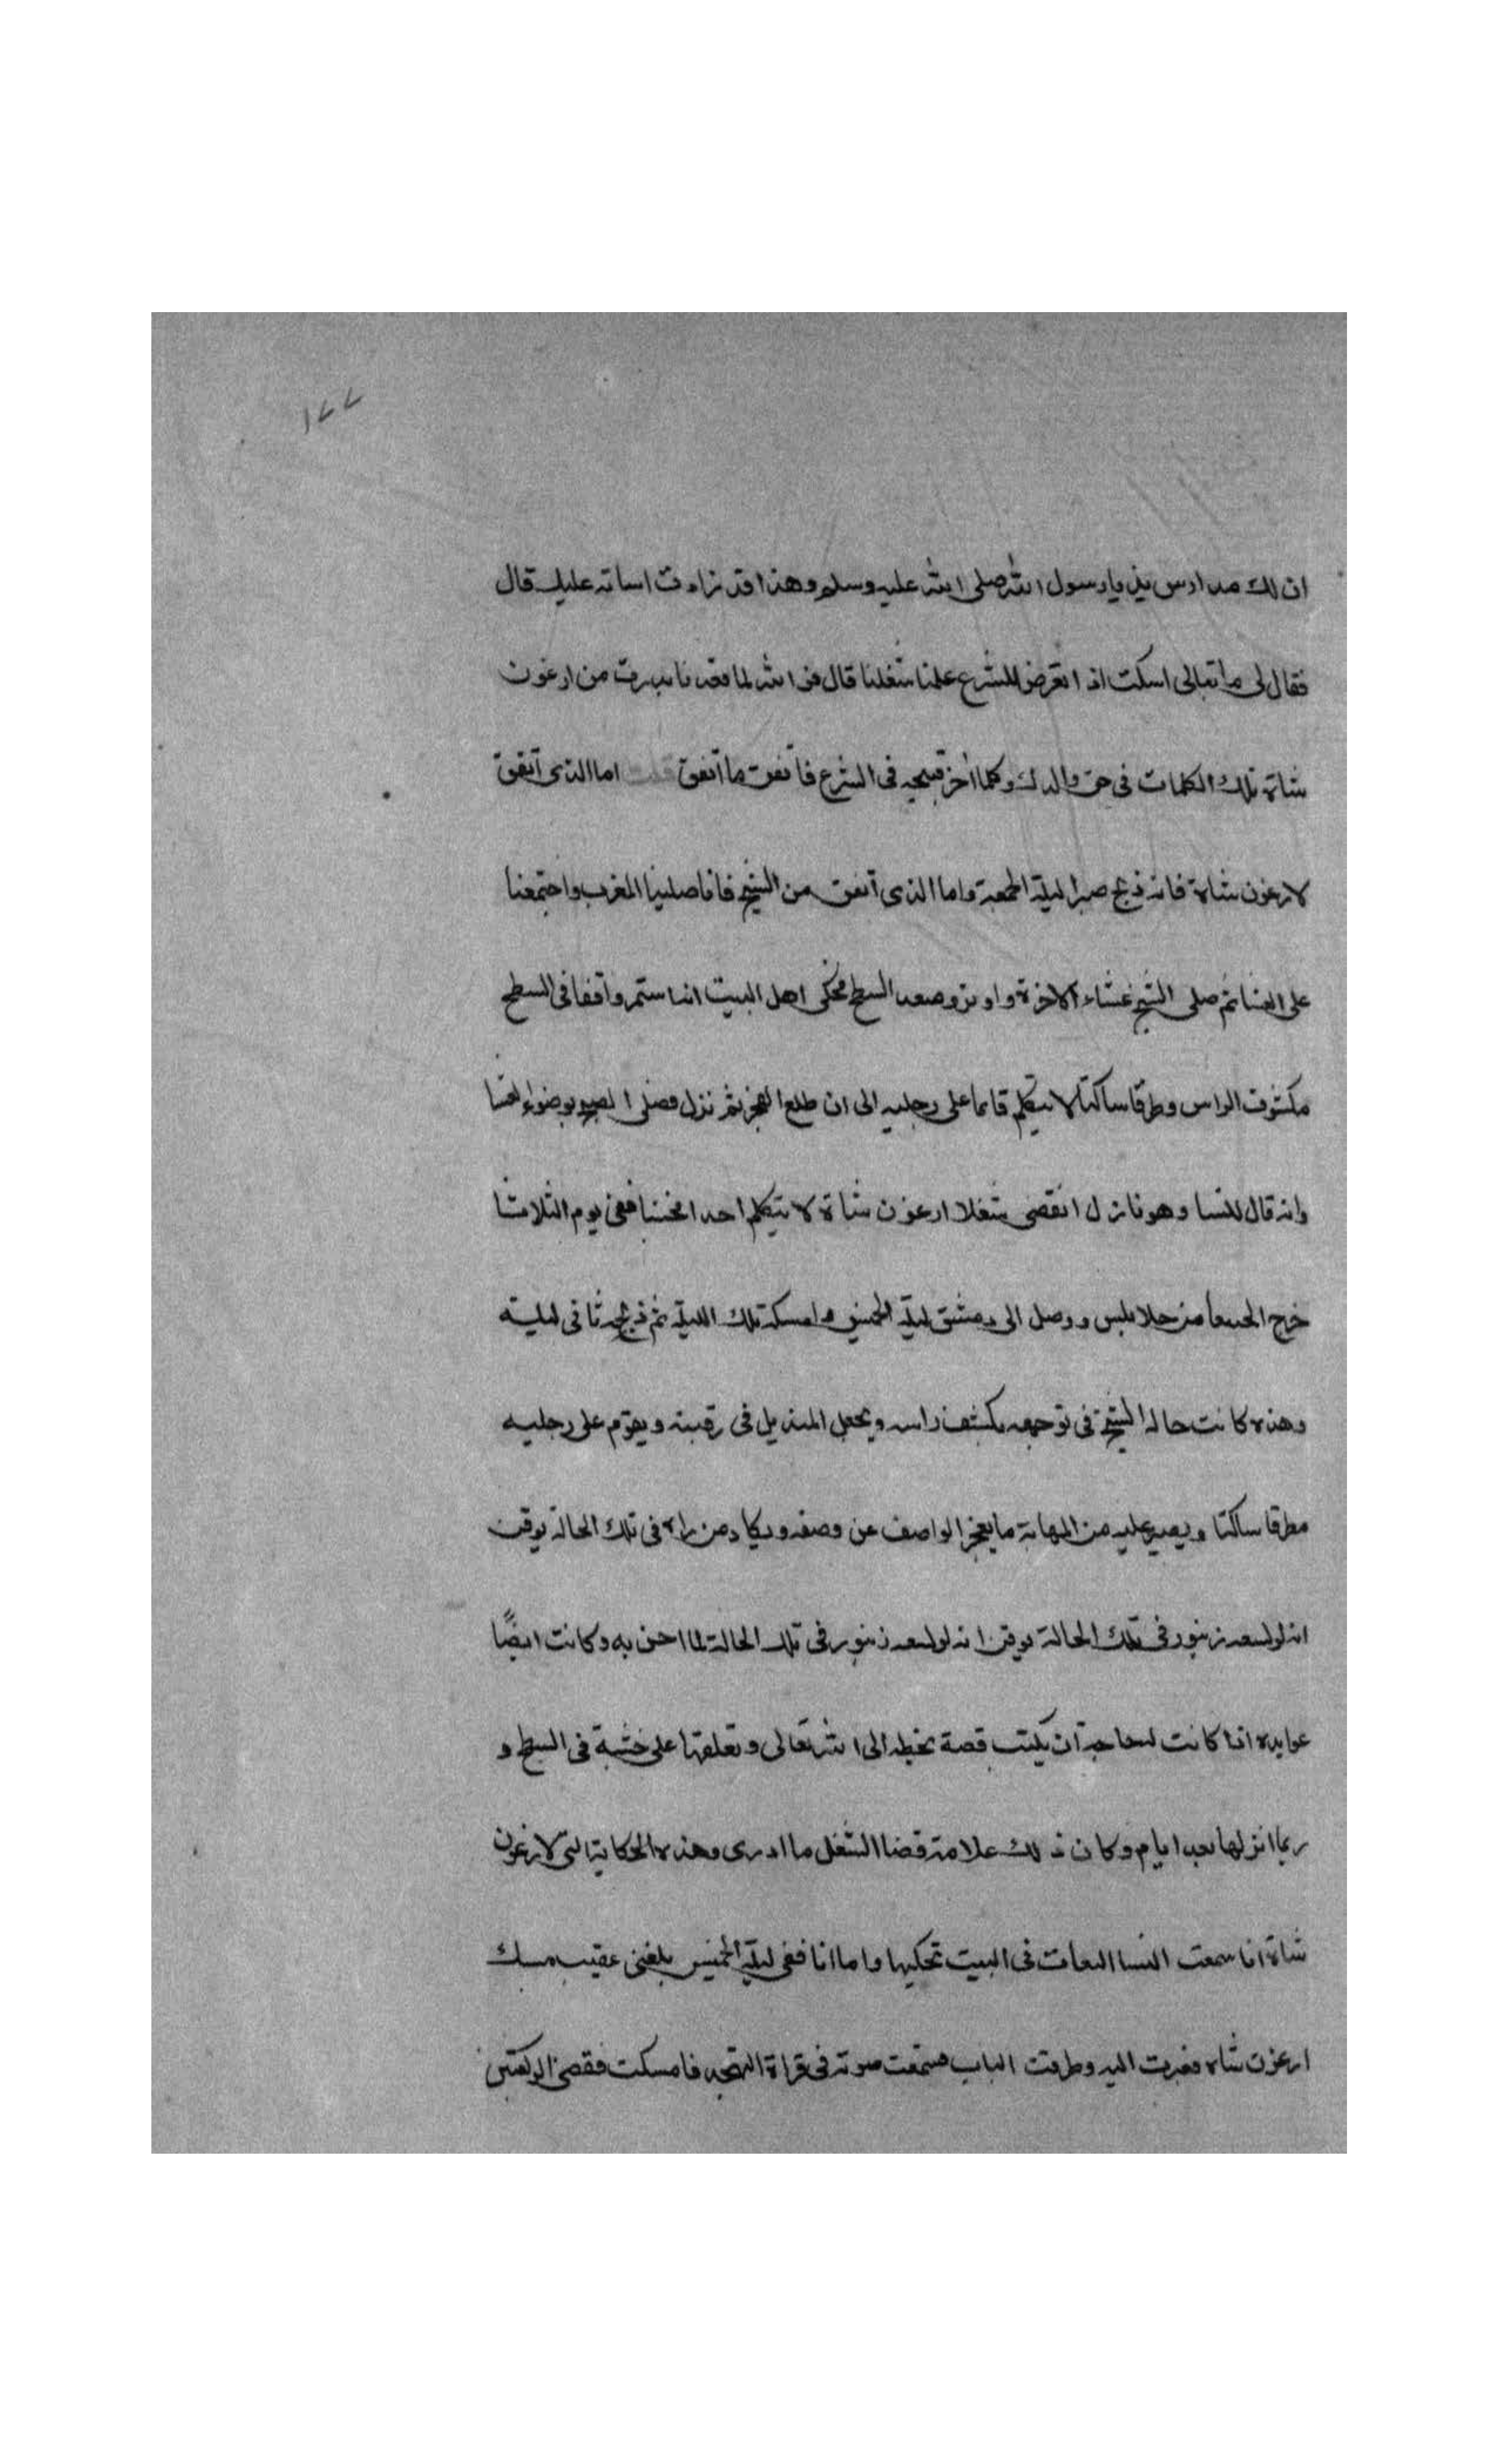 ١٧٧
ان لك مدارس يذ يا رسول الله صلى الله عليه وسلم وهذا قد زادت اساته عليك قال
فقال لى ما تبالى اسكت اذا تعرض للشرع علمنا شغلنا قال فو الله لما فقد نا بدرت من ارغون
شاة تلك الكلمات فى حق والدك وكلما أخر قبيحه فى الشرع فاتفق ما اتفق قلت اما الذى اتفق
لارغون شاة فانه ذبح صبرا ليلة الجمعة واما الذى اتفق من الشيخ فانا صلينا المغرب واجتمعنا
على العشا ثم صلى الشيخ عشاء الاخرة واوتر وصعد السطح فحكى اهل البيت انه استمر واقفا فى السطح
مكشوف الراس وطرقا ساكتا لا يتكلم قايما على رجليه الى ان طلع الفجر ثم نزل فصلى الصبح بوضوء العشا
وانه قال للنسا وهو نازل انقضى شغلا ارغون شاة لا يتكلم احدا فحننا ففى يوم الثلاثا
خرج الجيبغا من حلابلس ووصل الى دمشق ليلة الخميس وامسكه تلك الليلة ثم ذبحه ثا فى ليليته
وهذه كانت حاله الشيخ فى توجهه يكشف راسه ويجعل المنديل فى رقبته ويقوم على رجليه
مطرقا ساكتا ويصير عليه من المهابة ما يعجز الواصف عن وصفه ويكاد من راه فى تلك الحالة يوقن
انه لو لسعه زنبور فى تلك الحالة يوقن انه لو لسعه زنبور فى تلك الحالة لما احس به وكانت ايضًا
عوايده اذا كانت له حاجة ان يكتب قصة بخطه الى الله تعالى وتعلقها على خشبة فى السطح و
ربما انزلها بعد ايام وكان ذلك علامة قضا الشغل ما ادرى وهذه الحكاية التى لارغون
شاة انا سمعت النسا العات فى البيت تحكيها واما انا ففى ليلة الخميس بلغنى عقيب مسك
ارغون شاه فعبرت اليه وطرقت الباب فسمعت صوته فى قراة التهجد فامسكت فقضى الركعتين